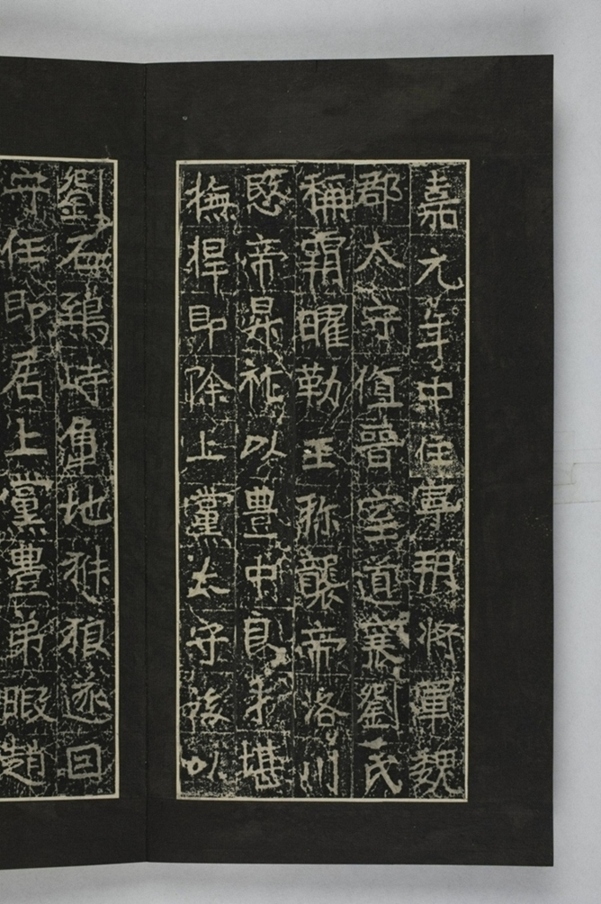 嘉元年中任寧朔將軍魏
郡太守值晉室道衰劉氏
稱霸曜勒王称襲帝洛川
愍帝祚以豊中良才堪
撫捍即除上黨太守後以
劉石鵄峙地狼遂回
守任即居上黨豊弟暇趙